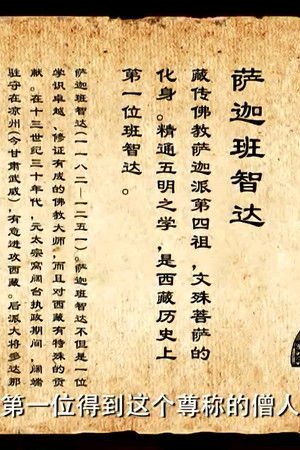 萨迦班智达
藏传佛教萨迦派第四祖，文殊菩萨的
化身。精通五明之学，是西藏历史上
第一位班智达。
萨迦班智达（一一八二—一二五一）。萨迦班智达不但是一位
学识卓越、修证有成的佛教大师，而且对西藏有特殊的贡
献。在十三世纪三十年代，元太宗窝阔台执政期间，阔端
驻守在凉州（今甘肃武威），有意进攻西藏。后派大将多达那
第一位得到这个尊称的僧人